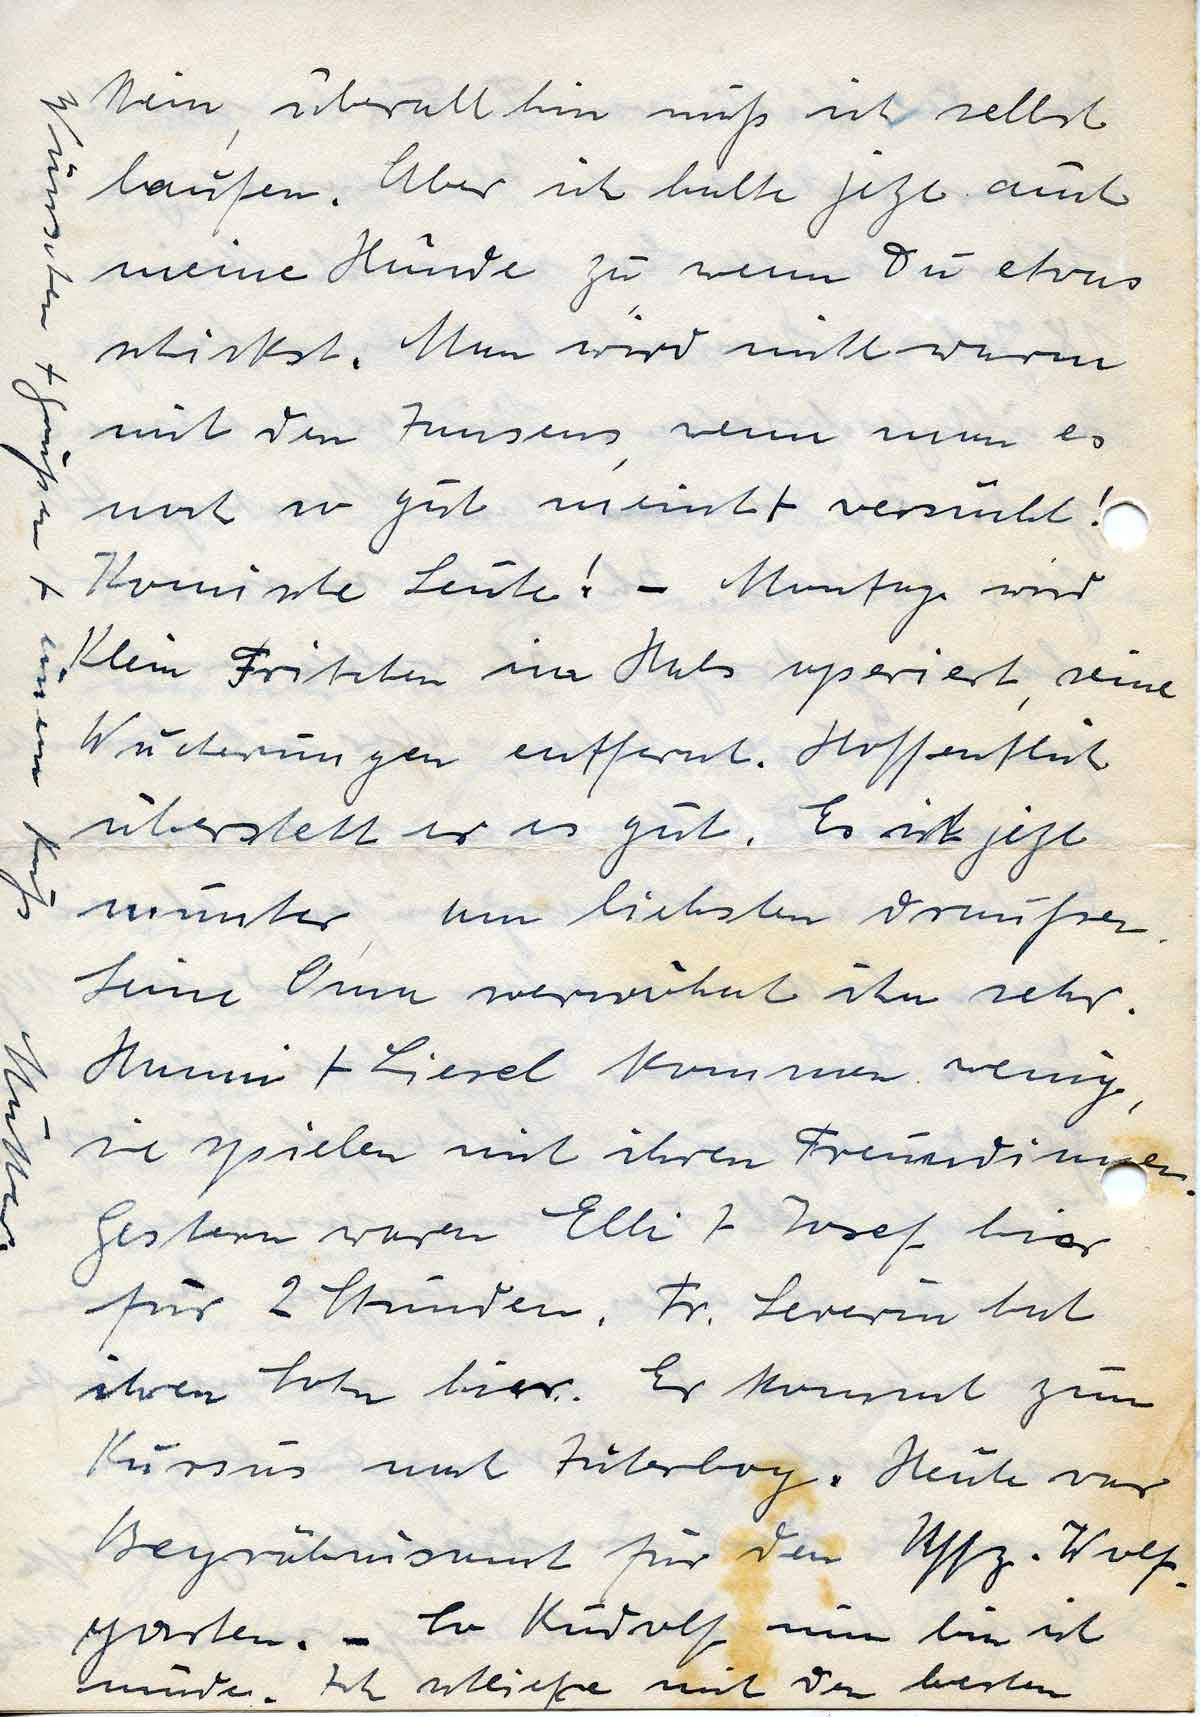 Nein, überall hin muß ich selbst
laufen. Aber ich halte jetzt auch
meine Hände zu, wenn Du etwas
schickst. Man wird nicht warm
mit den Jansens, wenn man es
noch so gut meint + versucht!
Komische Leute! – Montag wird
Klein Fritzchen im Hals operiert, seine
Wucherungen entfernt. Hoffentlich
übersteht er es gut. Er ist jetzt
munter, am liebsten draußen.
Seine Oma verwöhnt ihn sehr.
Hanni + Liesel kommen wenig,
sie spielen mit ihren Freundinnen.
Gestern waren Elli + Josef hier
für 2 Stunden. Fr. Severin hat
ihren Sohn hier. Er kommt zum
Kursus nach Jüterbog. Heute war
Begräbnisamt für den Uffz. Wolf-
garten. – So Rudolf nun bin ich
müde. Ich schließe mit den besten
Wünschen + Grüßen + einem Kuß
Mutter.